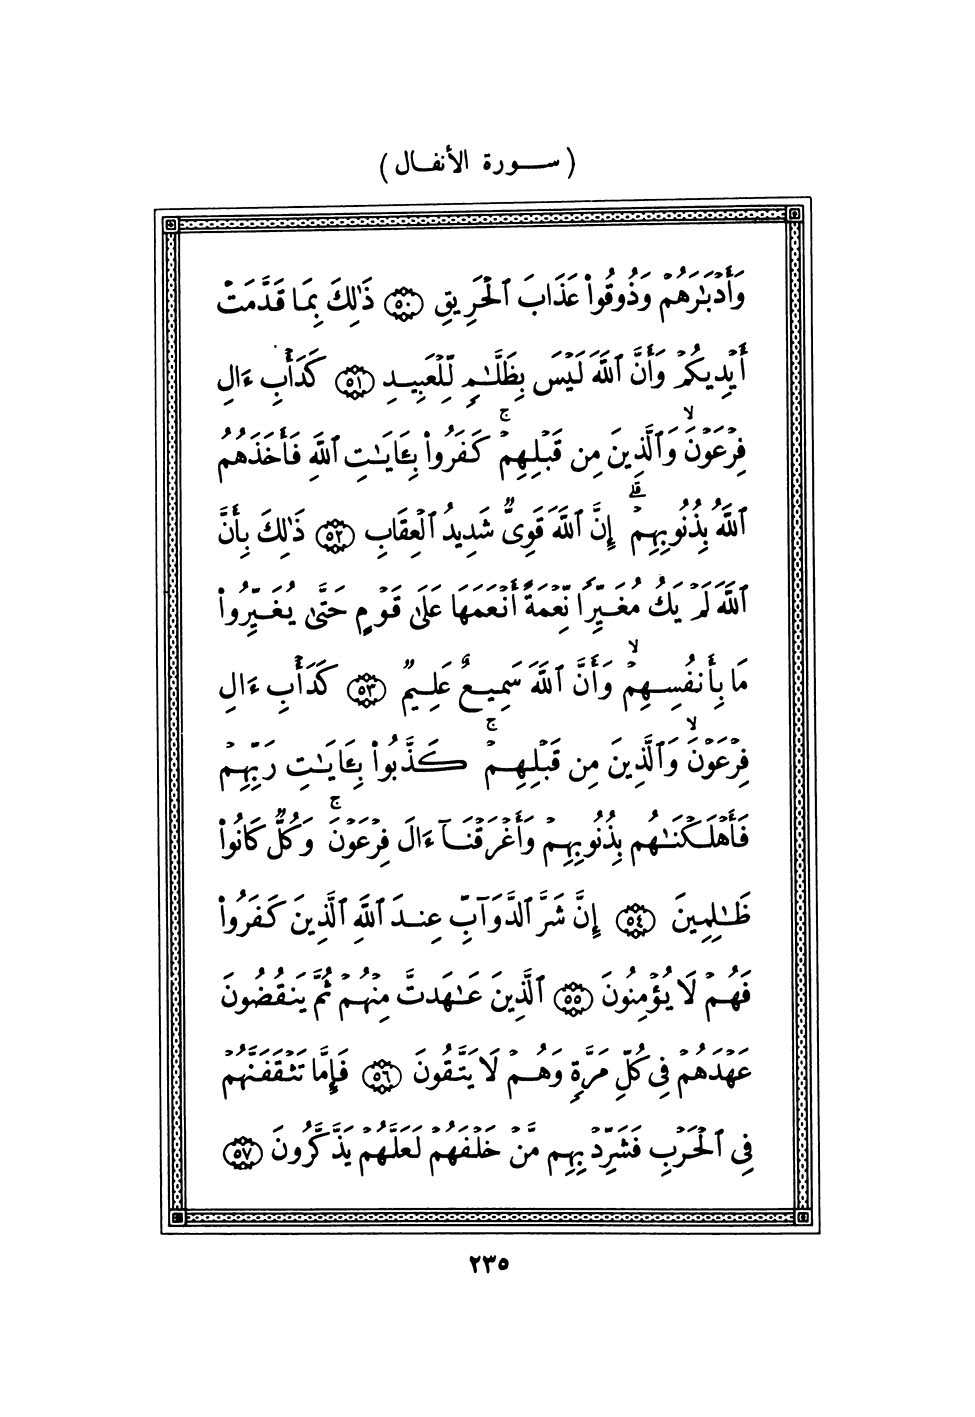 (ســـورة الأنفـال)
وَأَدْبَـٰرَهُمْ وَذُوقُوا۟ عَذَابَ ٱلْحَرِيقِ ۝٥٠ ذَٰلِكَ بِمَا قَدَّمَتْ
أَيْدِيكُمْ وَأَنَّ ٱللَّهَ لَيْسَ بِظَلَّـٰمٍ لِّلْعَبِيدِ ۝٥١ كَدَأْبِ ءَالِ
فِرْعَوْنَ ۙ وَٱلَّذِينَ مِن قَبْلِهِمْ ۚ كَفَرُوا۟ بِـَٔايَـٰتِ ٱللَّهِ فَأَخَذَهُمُ
ٱللَّهُ بِذُنُوبِهِمْ ۗ إِنَّ ٱللَّهَ قَوِىٌّ شَدِيدُ ٱلْعِقَابِ ۝٥٢ ذَٰلِكَ بِأَنَّ
ٱللَّهَ لَمْ يَكُ مُغَيِّرًا نِّعْمَةً أَنْعَمَهَا عَلَىٰ قَوْمٍ حَتَّىٰ يُغَيِّرُوا۟
مَا بِأَنفُسِهِمْ ۙ وَأَنَّ ٱللَّهَ سَمِيعٌ عَلِيمٌ ۝٥٣ كَدَأْبِ ءَالِ
فِرْعَوْنَ ۙ وَٱلَّذِينَ مِن قَبْلِهِمْ ۚ كَذَّبُوا۟ بِـَٔايَـٰتِ رَبِّهِمْ
فَأَهْلَكْنَـٰهُم بِذُنُوبِهِمْ وَأَغْرَقْنَآ ءَالَ فِرْعَوْنَ ۚ وَكُلٌّ كَانُوا۟
ظَـٰلِمِينَ ۝٥٤ إِنَّ شَرَّ ٱلدَّوَآبِّ عِندَ ٱللَّهِ ٱلَّذِينَ كَفَرُوا۟
فَهُمْ لَا يُؤْمِنُونَ ۝٥٥ ٱلَّذِينَ عَـٰهَدتَّ مِنْهُمْ ثُمَّ يَنقُضُونَ
عَهْدَهُمْ فِى كُلِّ مَرَّةٍ وَهُمْ لَا يَتَّقُونَ ۝٥٦ فَإِمَّا تَثْقَفَنَّهُمْ
فِى ٱلْحَرْبِ فَشَرِّدْ بِهِم مَّنْ خَلْفَهُمْ لَعَلَّهُمْ يَذَّكَّرُونَ ۝٥٧
٢٣٥